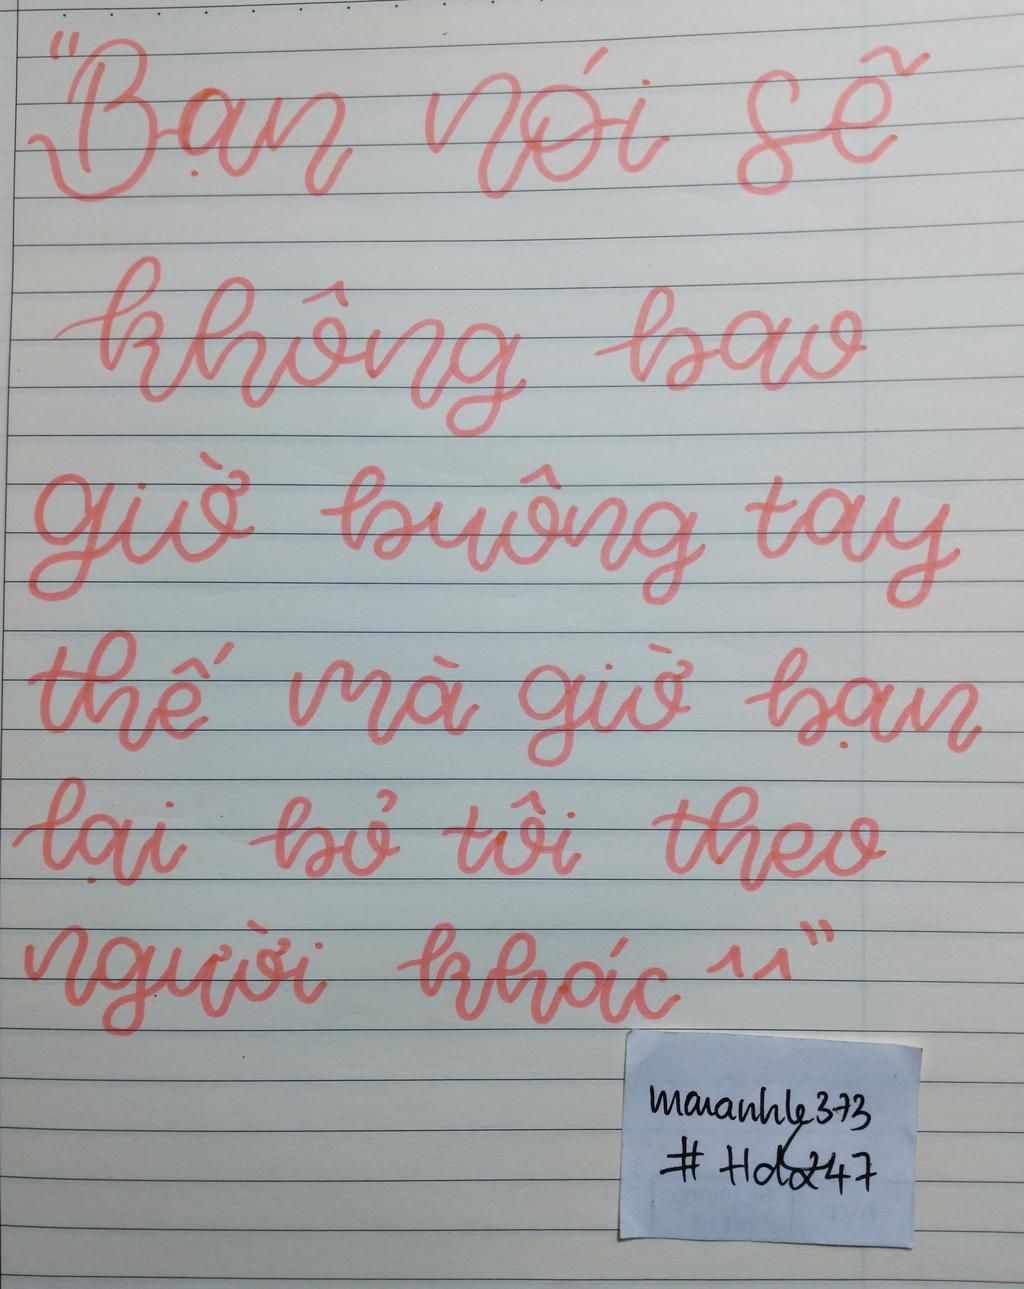 "Bạn nói sẽ
không bao
giờ buông tay
thế mà giờ bạn
lại bỏ tôi theo
người khác ^^"
maianhle373